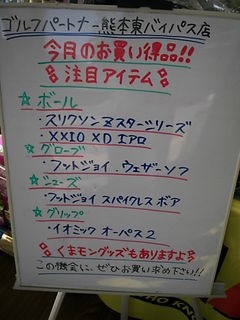 ゴルフパートナー熊本東バイパス店
今月のお買い得品!!
☆注目アイテム☆
☆ボール
・スリクソン Zスターシリーズ
・XXIO XD エアロ
☆グローブ
・フットジョイ . ウェザーソフ
☆シューズ
・フットジョイ スパイクレス ボア
☆グリップ
・イオミック オーパス2
・くまモングッズもありますよ
この機会に、ぜひお買い求め下さい!!